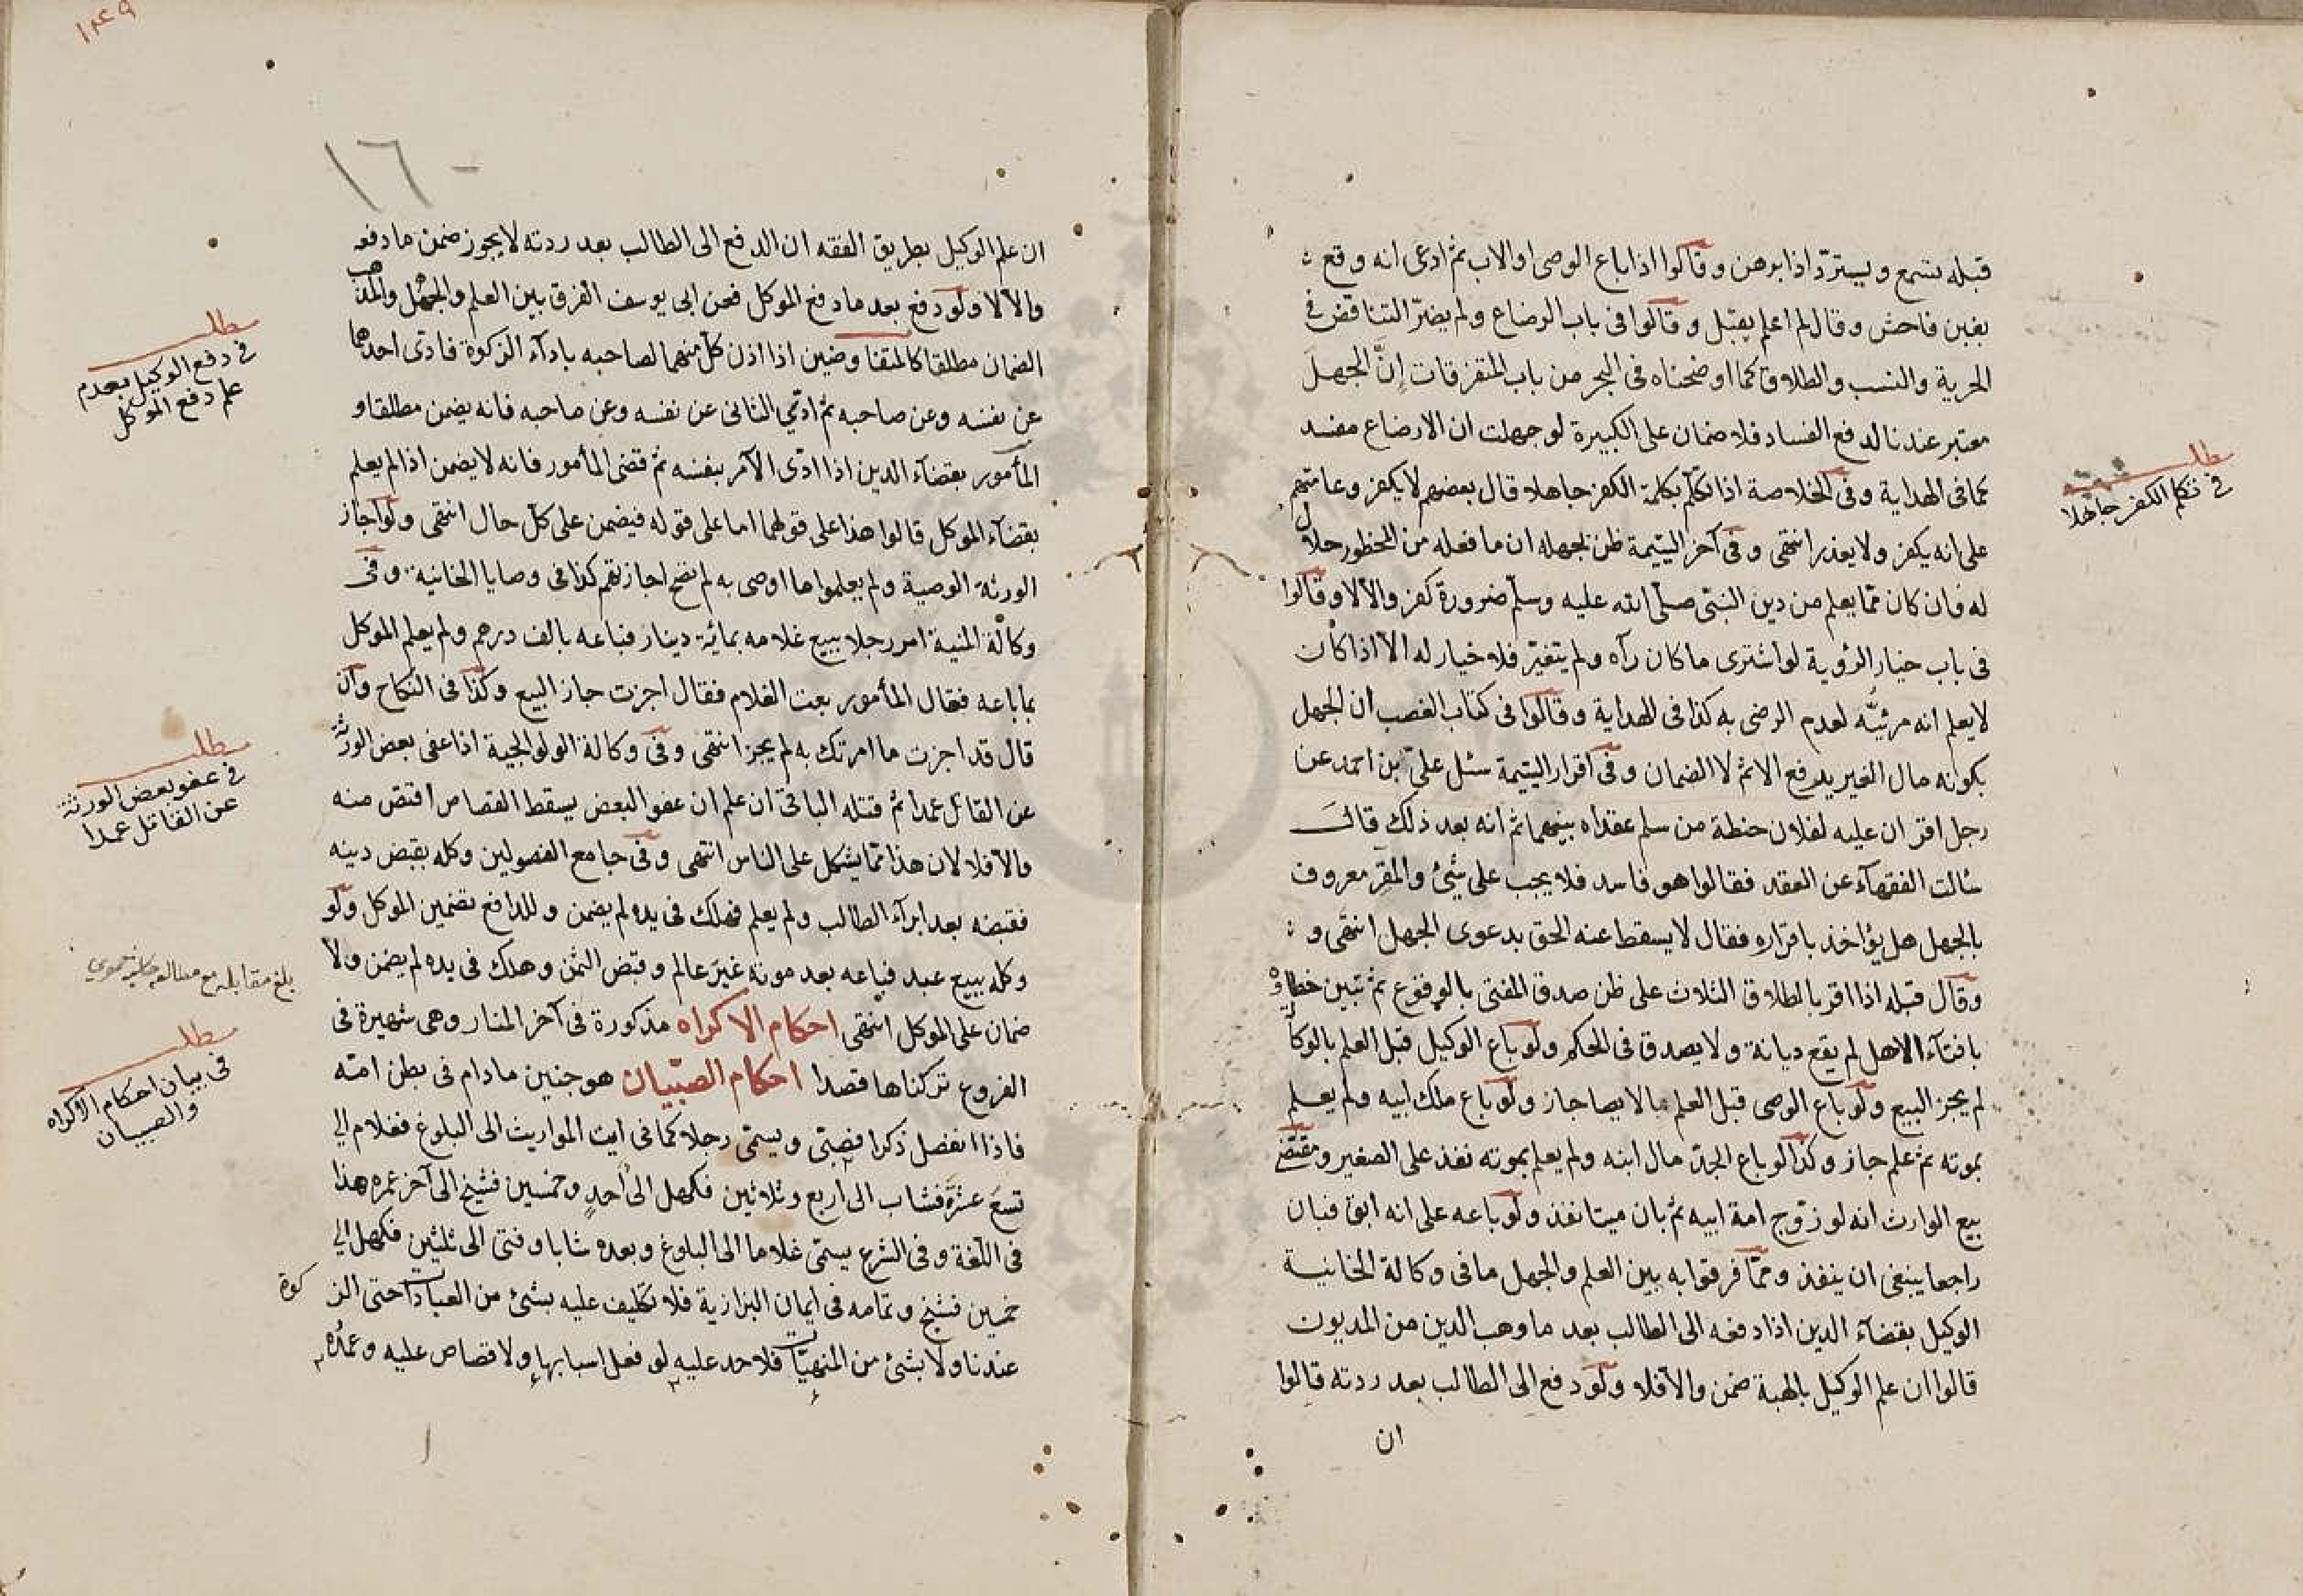 قبله تسمع ويستردّ اذا برهن وقالوا اذا باع الوصى او الاب ثم ادعى انه وقع
بغبن فاحش وقال لم اعلم يقبل وقالوا فى باب الرضاع ولم يضرّ التناقض فى
الحرية والنسب والطلاق كما اوضحناه فى البحر من باب المتفرقات إنّ الجهل
معتبر عندنا لدفع الفساد فلا ضمان على الكبيرة لو جهلت ان الارضاع مفسد
كما فى الهداية وفى الخلاصة اذا تكلّم بكلمة الكفر جاهلا قال بعضهم لا يكفر وعامتهم
على انه يكفر ولا يعذر انتهى وفى آخر اليتيمة ظن لجهله ان ما فعله من المحظور حلال
له فان كان ممّا يعلم من دين النبىّ صلّى الله عليه وسلّم ضرورة كفر والّا لا وقالوا
فى باب خيار الرؤية لو اشترى ما كان رآه ولم يتغيّر فلا خيار له الّا اذا كان
لا يعلم انه مرئيّه لعدم الرضى به كذا فى الهداية وقالوا فى كتاب الغصب ان الجهل
بكونه مال الغير يدفع الاثم لا الضمان وفى اقرار اليتيمة سئل علىّ بن احمد عن
رجل اقر ان عليه لفلان حنطة من سلم عقداه بينهما ثم انه بعد ذلك قال
سألت الفقهآء عن العقد فقالوا هو فاسد فلا يجب على شئ والمقرّ معروف
بالجهل هل يؤاخذ باقراره فقال لا يسقط عنه الحق بدعوى الجهل انتهى و
وقال قبله اذا اقر بالطلاق الثلاث على ظن صدق المفتى بالوقوع ثم تبين خطاؤه
بافتآء الاهل لم يقع ديانة ولا يصدق فى الحكم ولو باع الوكيل قبل العلم بالوكا
لم يجز البيع ولو باع الوصى قبل العلم بالايصا جاز ولو باع ملك ابيه ولم يعلم
بموته ثم علم جاز وكذا لو باع الجدّ مال ابنه ولم يعلم بموته نفذ على الصغير ومقتضى
بيع الوارث انه لو زوّج امة ابيه ثم بان ميتا نفذ ولو باعه على انه ابق فبان
راجعا ينبغى ان ينفذ وممّا فرقوا به بين العلم والجهل ما فى وكالة الخانية
الوكيل بقضآء الدين اذا دفعه الى الطالب بعد ما وهب الدين من المديون
قالوا ان علم الوكيل بالهبة ضمن والّا فلا ولو دفع الى الطالب بعد ردته قالوا
ان
مطلب
فى تكلم الكفر جاهلا
١٤٩
١٦٠
ان علم الوكيل بطريق الفقه ان الدفع الى الطالب بعد ردته لا يجوز ضمن ما دفعه
والّا لا ولو دفع بعد ما دفع الموكل فعن ابى يوسف الفرق بين العلم والجهل والمذهب
الضمان مطلقا كالمتفاوضين اذا اذن كلّ منهما لصاحبه بادآء الزكوة فادى احدهما
عن نفسه وعن صاحبه ثم ادّى الثانى عن نفسه وعن صاحبه فانه يضمن مطلقا و
المأمور بقضآء الدين اذا ادّى الآمر بنفسه ثم قضى المأمور فانه لا يضمن اذا لم يعلم
بقضآء الموكل قالوا هذا على قولهما اما على قوله فيضمن على كلّ حال انتهى ولو اجاز
الورثة الوصية ولم يعلموا ما اوصى به لم تصح اجازتهم كذا فى وصايا الخانية وفى
وكالة المنية امر رجلا ببيع غلامه بمائة دينار فباعه بالف درهم ولم يعلم الموكل
بما باعه فقال المأمور بعت الغلام فقال اجزت جاز البيع وكذا فى النكاح وان
قال قد اجزت ما امرتك به لم يجز انتهى وفى وكالة الولوالجية اذا عفى بعض الورثة
عن القاتل عمدا ثم قتله الباقى ان علم ان عفو البعض يسقط القصاص اقتص منه
والّا فلا لان هذا ممّا يشكل على الناس انتهى وفى جامع الفصولين وكله بقبض دينه
فقبضه بعد ابرآء الطالب ولم يعلم فهلك فى يده لم يضمن وللدافع تضمين الموكل ولو
وكله ببيع عبد فباعه بعد موته غير عالم وقبض الثمن وهلك فى يده لم يضمن ولا
ضمان على الموكل انتهى احكام الاكراه مذكورة فى آخر المنار وهى شهيرة فى
الفروع تركناها قصدا احكام الصبيان هو جنين مادام فى بطن امّه
فاذا انفصل ذكرا فصبّى ويسمّى رجلا كما فى آيت المواريث الى البلوغ فغلام الى
تسع عشرة فشاب الى اربع وثلاثين فكهل الى احدٍ وخمسين فشيخ الى آخر عمره هذا
فى اللّغة وفى الشرع يسمّى غلاما الى البلوغ وبعده شابا وفتى الى ثلثين فكهل الى
خمسين فشيخ وتمامه فى ايمان البزازية فلا تكليف عليه بشئ من العبادات حتى الز كوة
عندنا ولا بشئ من المنهيّات فلا حد عليه لو فعل اسبابها ولا قصاص عليه وعمده
مطلب
فى دفع الوكيل بعدم
علم دفع الموكل
مطلب
فى عفو بعض الورثة
عن القاتل عمدا
بلغ مقابله مع مطالعه
مطلب
فى بيان احكام الاكراه
والصبيان